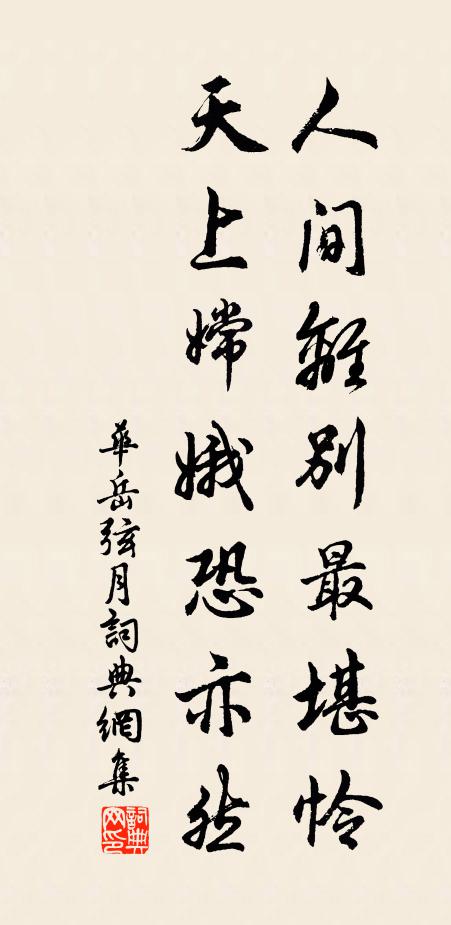 人間離別最堪憐
天上嫦娥恐亦然
華岳弦月詞典網集
詞典網印